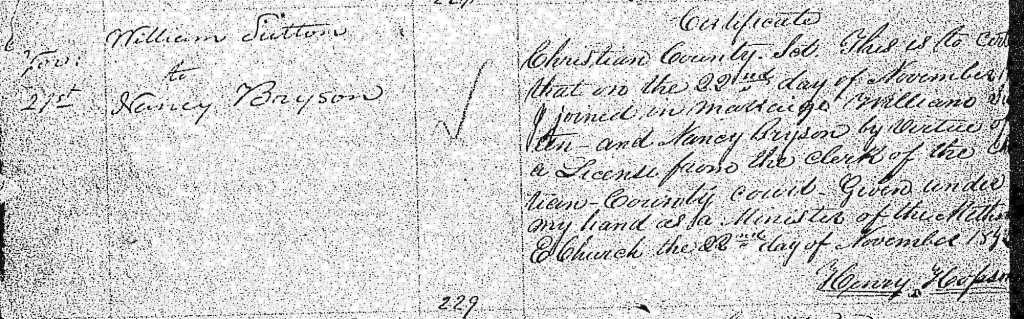 Nov:
21st
William Sutton
to
Nancy Bryson
Certificate
Christian County. Sct. This is to
that on the 22nd day of November
I joined in marriage William
ton and Nancy Bryson by Virtue of
a License from the clerk of the
tian County court - Given under
my hand as a Minister of the
E Church the 22nd day of November
Henry
229